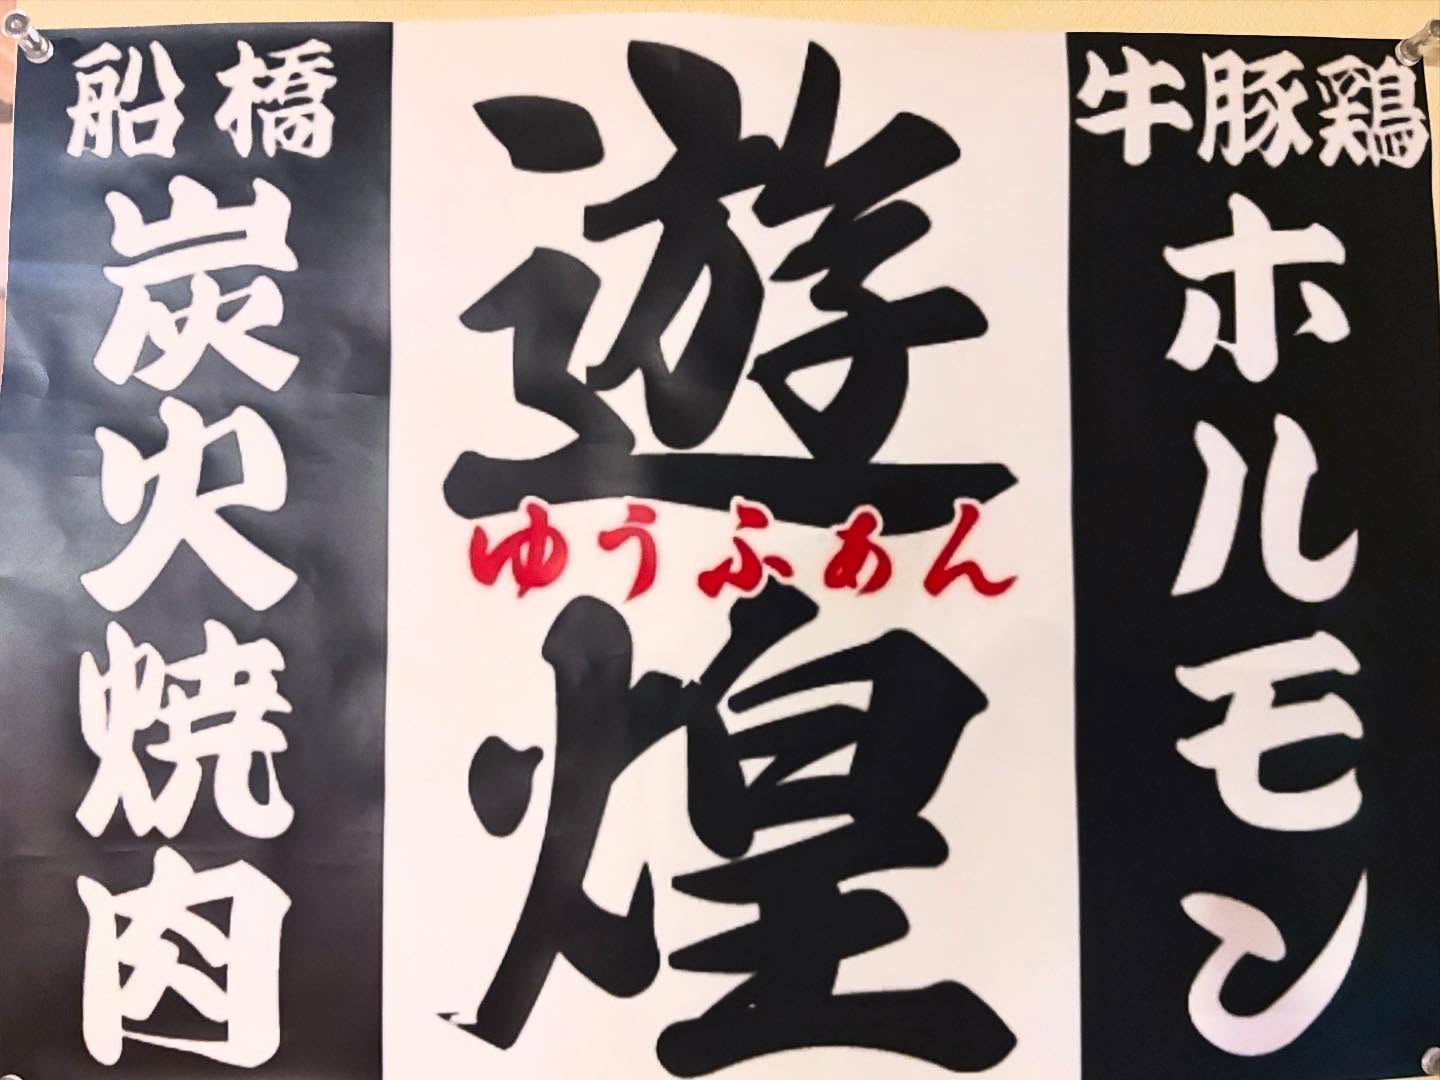 牛豚鶏
ホルモン
遊煌
ゆうふぁん
船橋
炭火焼肉